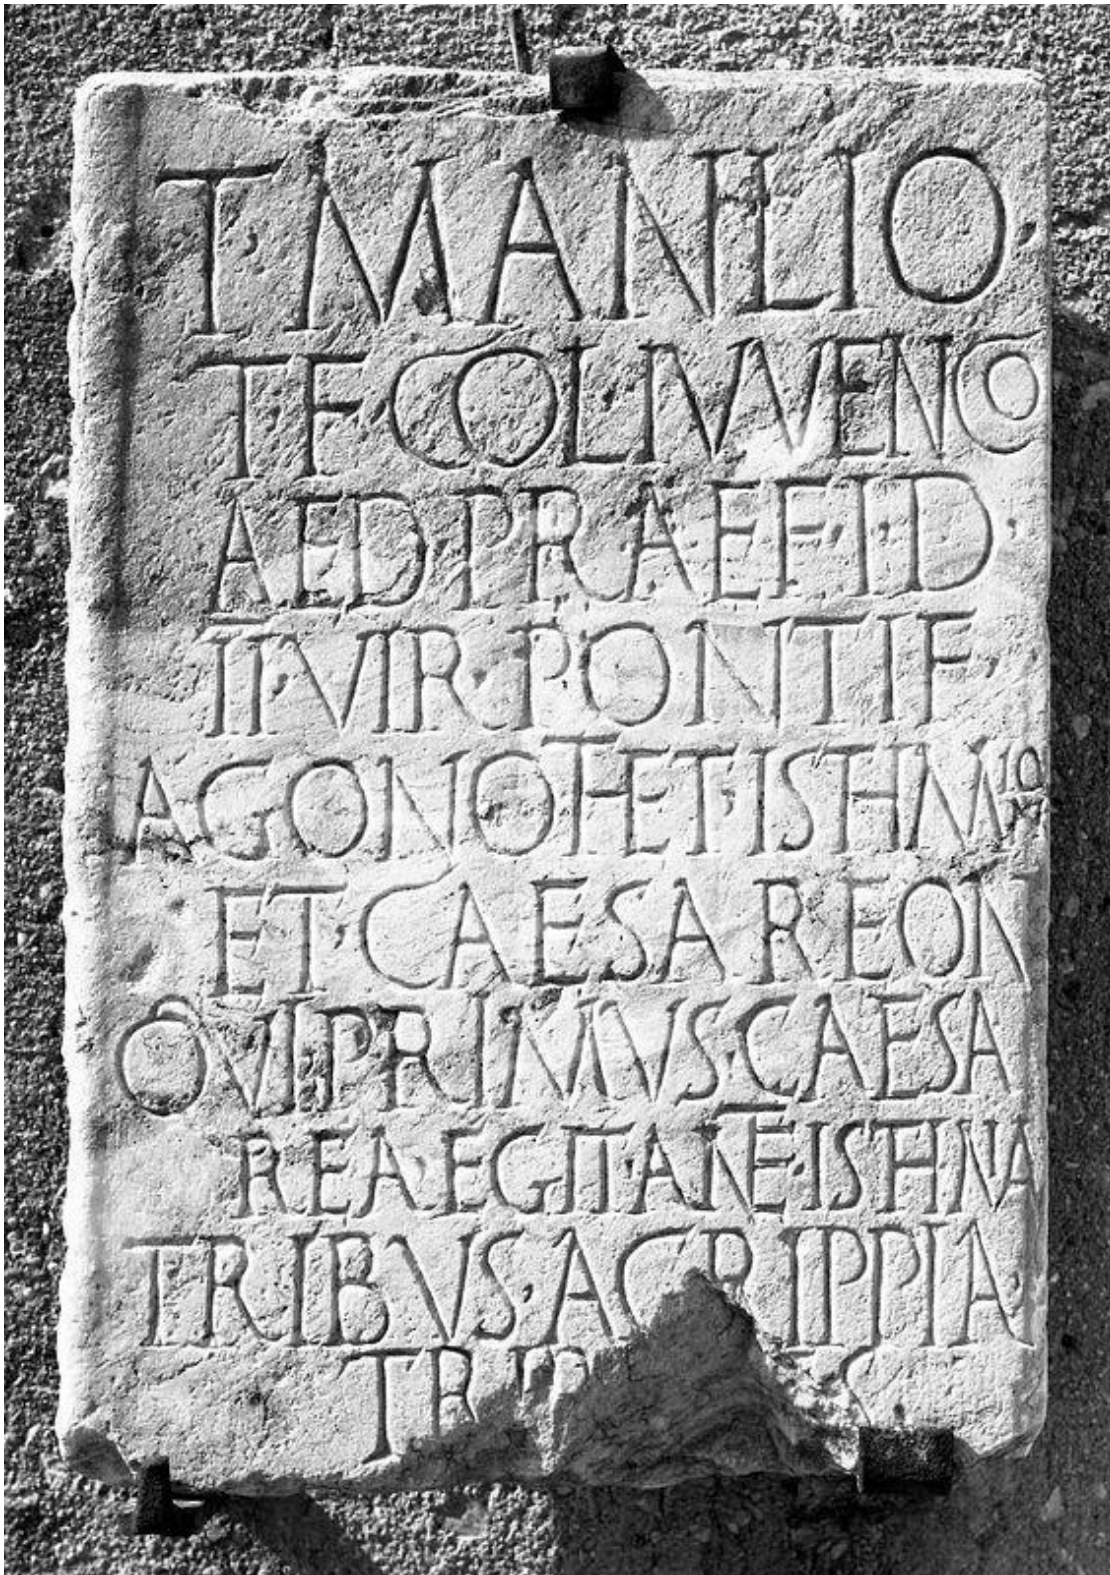 T·MANLIO·
T·F·COL·IVVENCO
AED·PRAEF·I·D·
II·VIR·PONTIF·
AGONOTHET·ISTHMION
ET·CAESAREON
QVI·PRIMVS·CAESA
REA·EGIT·ANTE·ISTHMIA
TRIBVS·AGRIPPIA·
TRIB